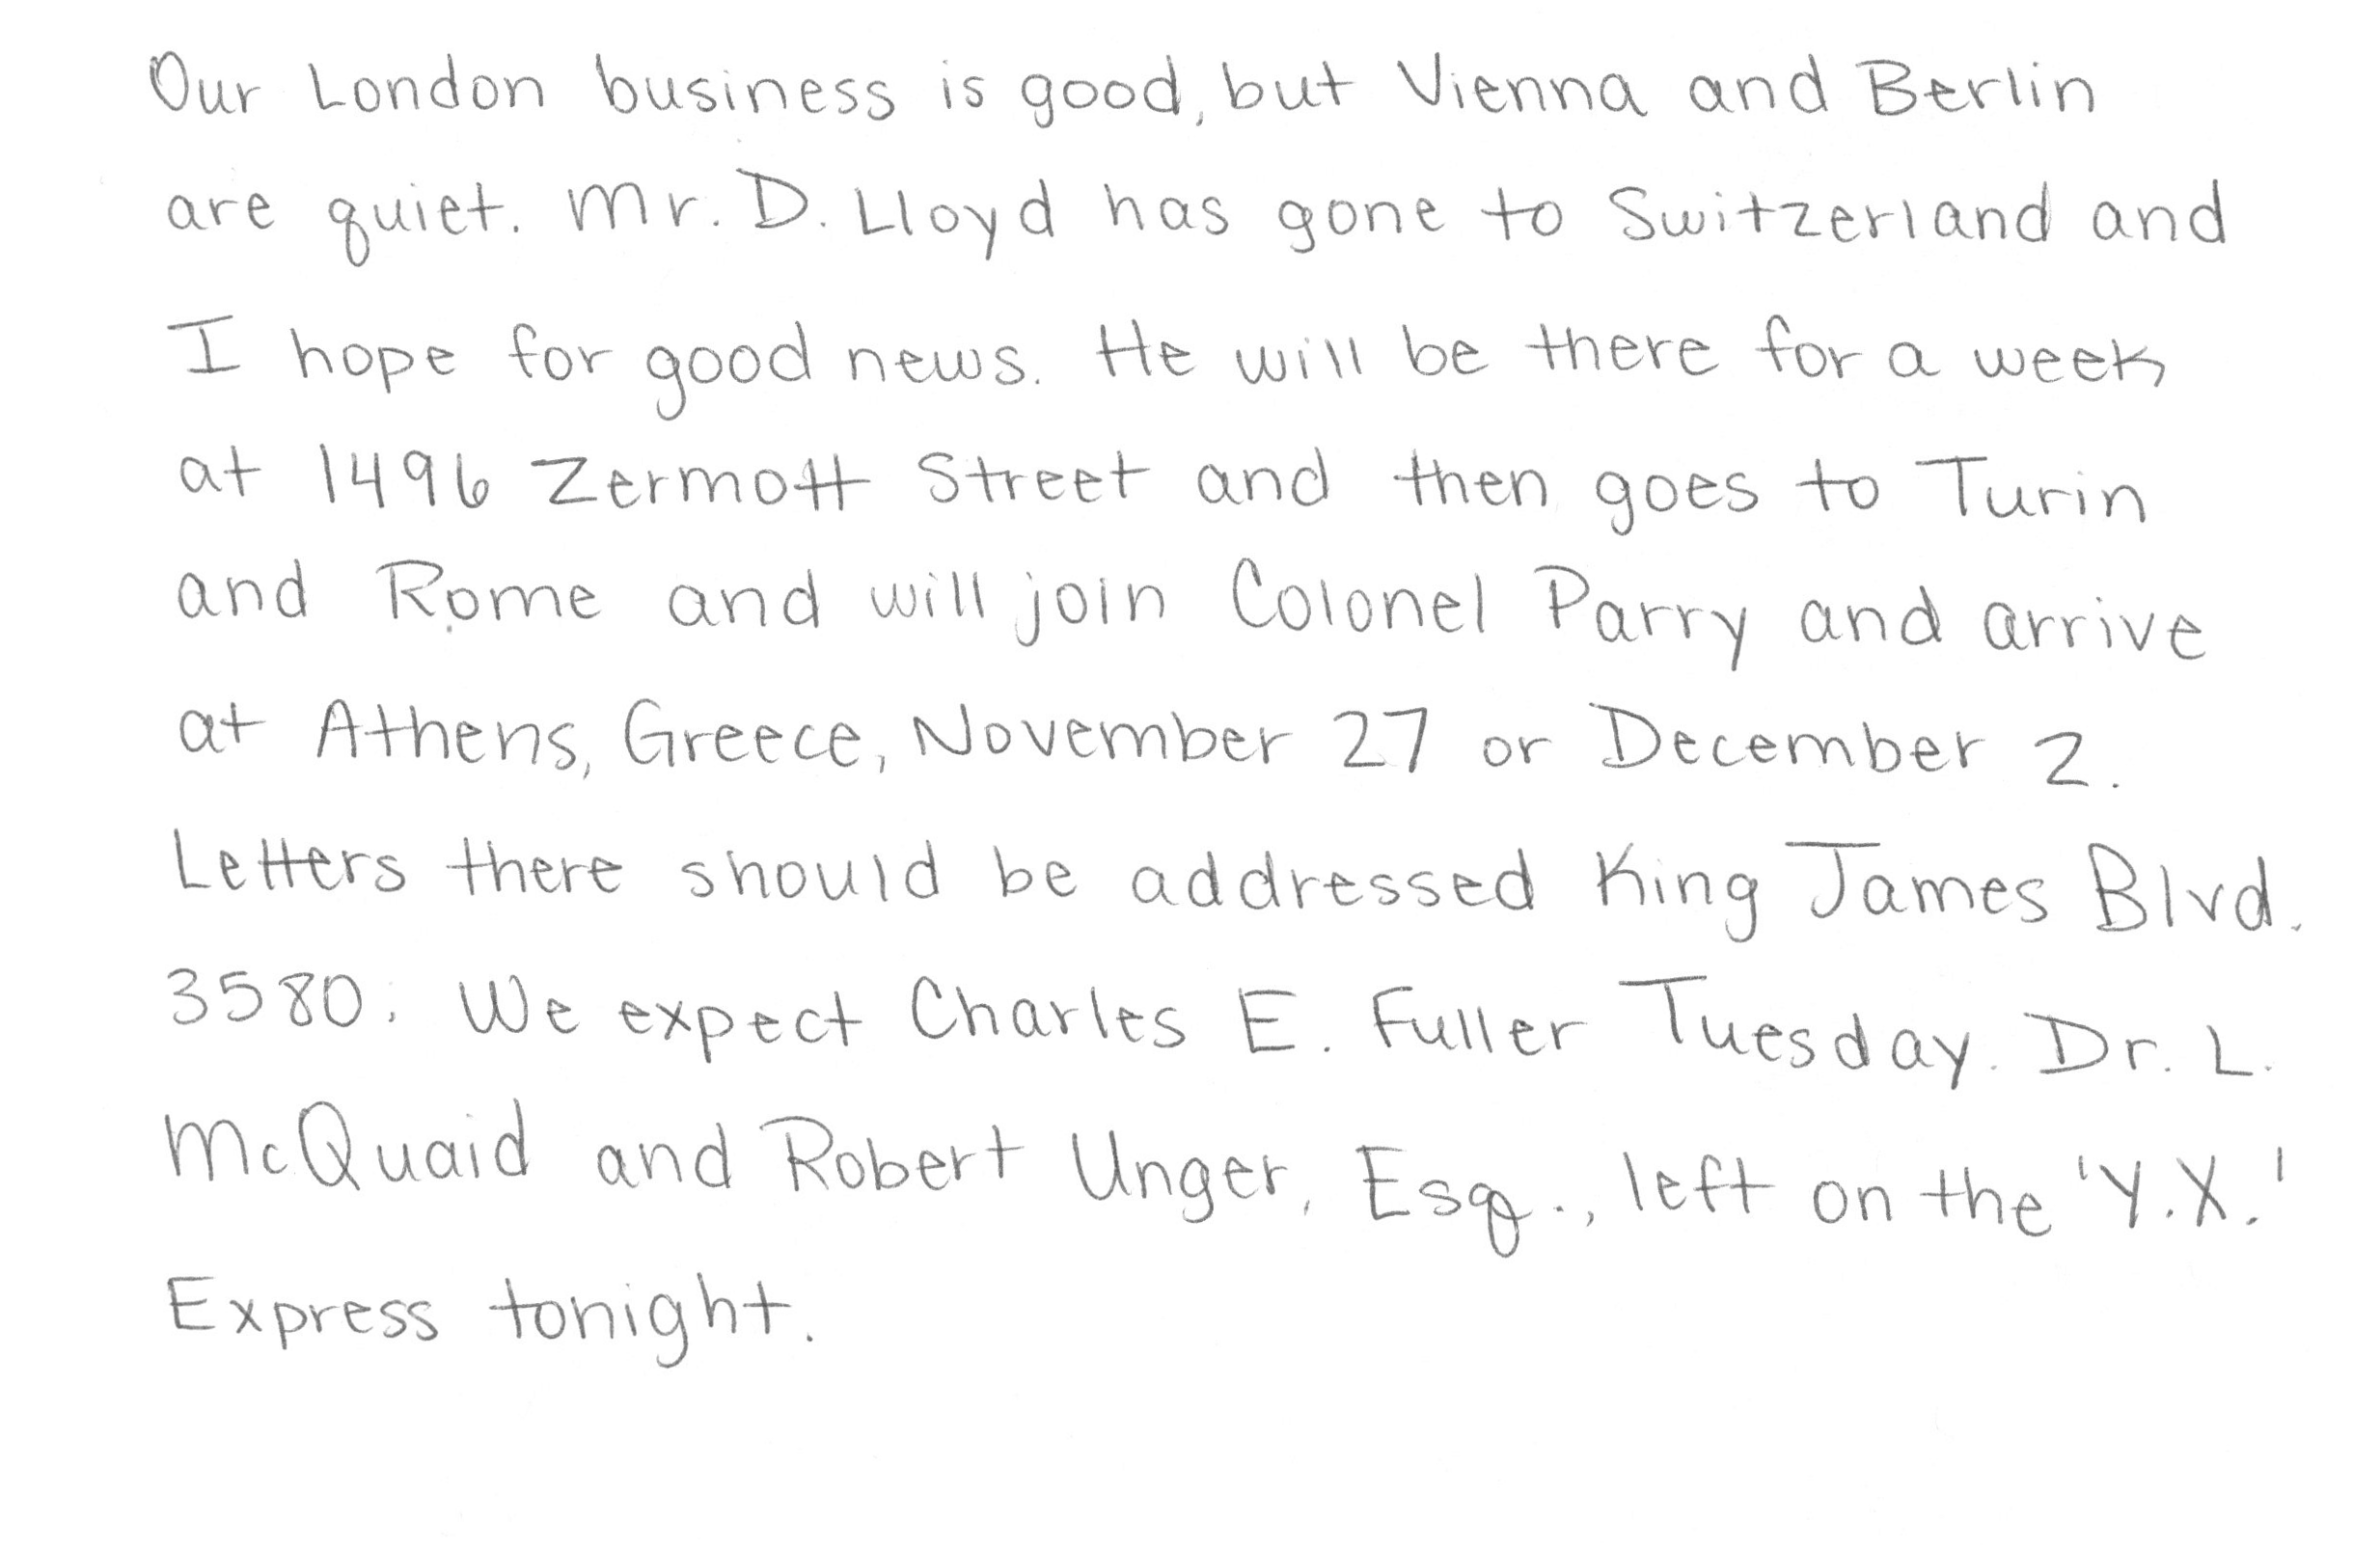 Our London business is good, but Vienna and Berlin
are quiet. Mr. D. Lloyd has gone to Switzerland and
I hope for good news. He will be there for a week
at 1496 Zermott Street and then goes to Turin
and Rome and will join Colonel Parry and arrive
at Athens, Greece, November 27 or December 2.
Letters there should be addressed King James Blvd.
3580. We expect Charles E. Fuller Tuesday. Dr. L.
McQuaid and Robert Unger, Esq., left on the 'Y.X.'
Express tonight.